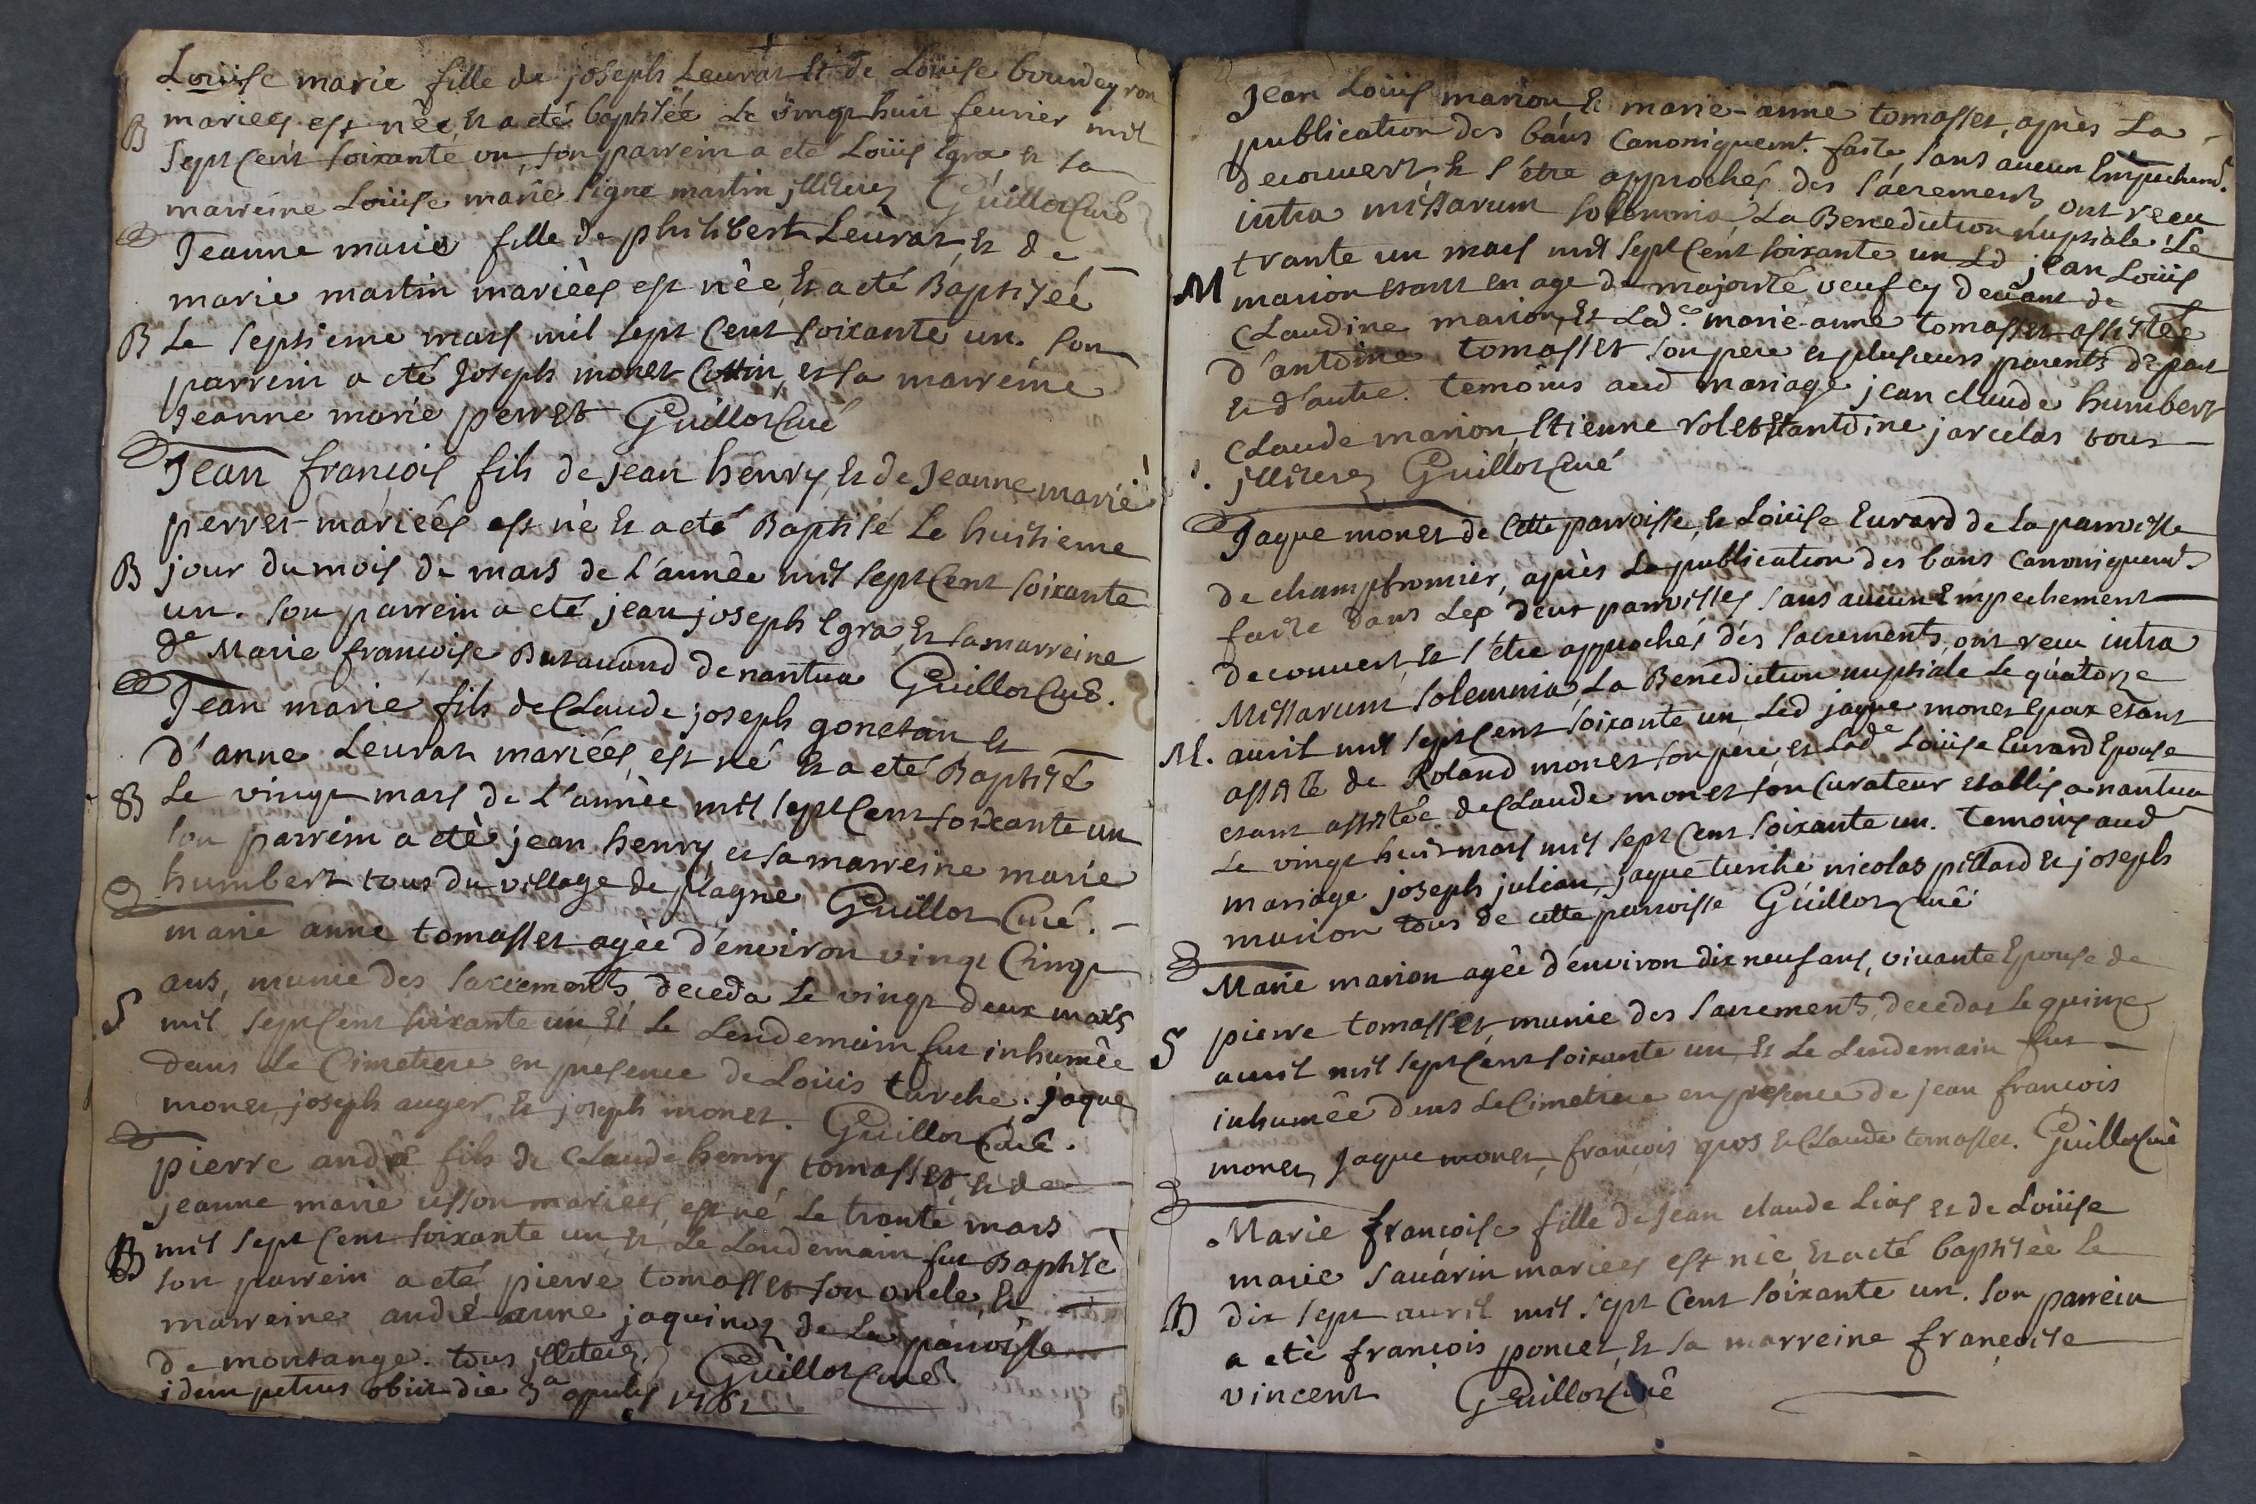 Louïse marie fille de joseph Leurat et de Louïse bourdeyron
mariees est nêe, et a eté baptisée Le vingt huit feurier mil
B
sept cent soixante un, son parrein a eté Loüis Egra et sa
marreine Louïse marie signe martin jlliterez Guillot Curé
Jeanne marie fille de philibert Leurat, et de
marie martin mariées est née, et a eté Baptisée
B Le septieme mars mil sept cent soixante un. son
parrein a eté Joseph monet Cottin, et sa marreine
Jeanne marie perret Guillot Curé
Jean françois fils de jean henry, et de Jeanne marie
perret mariées est né et a eté Baptisé Le huitieme
B jour du mois de mars de L'année mil sept Cent soixante
un. son parrein a eté jean joseph Egra, et sa marreine
de Marie françoise Butavand de nantua Guillot Curé.
Jean marie fils de CLaude joseph gonetan et
d'anne Leurat mariées, est né et a eté Baptisé
B Le vingt mars de L'année mil sept Cent soixante un
son parrein a eté jean henry, et sa marreine marie
humbert tous du village de plagne Guillot Curé.
marie anne tomasset agée d'environ vingt Cinq
ans, munie des sacrements, deceda Le vingt deux mars
S mil sept Cent soixante un, et Le Lendemain fut inhumée
dans Le Cimetiere en presence de Loüis turche. jaque
monet, joseph auger, et joseph monet. Guillot Curé.
pierre andré fils de CLaude henry tomasset, et de
jeanne marie usson mariées, est né Le trante mars
B mil sept Cent soixante un et Le Lendemain fut Baptisé
son parrein a eté pierre tomasset son oncle, et
marreine andré anne jaquinot de La parroisse
de montange. tous jlliterez Guillot Curé
idem petrus obiit die 3a aprilis 1761
Jean Loüis marion, et marie-anne tomasset, après La
publication des bans Canoniquemt. faite sans aucun Empechemt.
decouvert, et s'étre approchés des sacrements, ont recu
intra missarum solemnia, La Benediction nuptiale Le
trante un mars mil sept Cent soixante un Ld jean Loüis
M marion etant en age de majorité, veuf cy devant de
CLaudine marion, Et Lade. marie-anne tomasset assistée
d'antoine tomasset son pere et plusieurs parents de part
et d'autre. temoins aud mariage jean claude humbert
CLaude marion, Etienne rolet et antoine jarcelat tous
jlliterez Guillot Curé
Jaque monet de Cette parroisse, et Louïse Eurard de La parroisse
de champfromier, après La publication des bans Canoniquemt.
faite dans Les deux parroisses sans aucun Empechement
decouvert, et s'étre approchés des sacrements, ont recu intra
Missarum solemnia, La Benediction nuptiale Le quatorze
M. auril mil sept Cent soixante un, Led jaque monet Epoux etant
assisté de Roland monet son pere, et Lade Louïse Eurard Epouse
etant assistée de CLaude monet son Curateur etablis a nantua
Le vingt huit mars mil sept Cent soixante un. Temoins aud
mariage joseph julian, jaque turche nicolas pillard et joseph
marion tous de cette parroisse Guillot Curé
Marie marion agée d'environ dix neuf ans, vivante Epouse de
pierre tomasset, munie des sacrements, deceda Le quinze
S
auril mil sept Cent soixante un et Le Lendemain fut
inhumée dens Le Cimetiere en presence de jean françois
monet, Jaque monet, françois gros et CLaude tomasset. Guillot Curé
Marie françoise fille de Jean claude Lias et de Louïse
marie sauarin mariees est née, et a eté baptisée Le
B dix sept auril mil sept Cent soixante un. son parrein
a eté françois poncet, et sa marreine françoise
vincent Guillot Curé